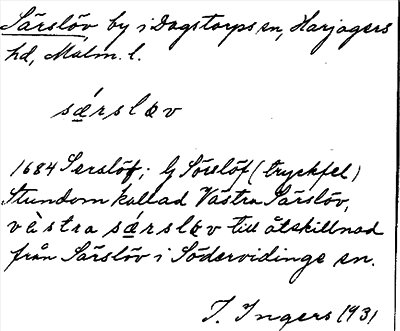 Särslöv by i Dagstorps sn, Harjagers
hd, Malm. l.
sǽrsløv
1684 Serslöf; G Sörslöf (tryckfel)
Stundom kallad Västra Särslöv,
vèstra sǽrsløv till åtskillnad
från Särslöv i Södervidinge sn.
I. Ingers 1931